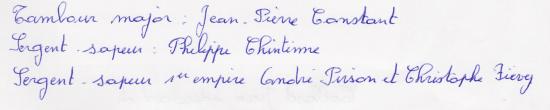 Tambour major : Jean-Pierre Constant
Sergent-sapeur : Philippe Thintinne
Sergent-sapeur 1er empire André Pirson et Christophe Fievez